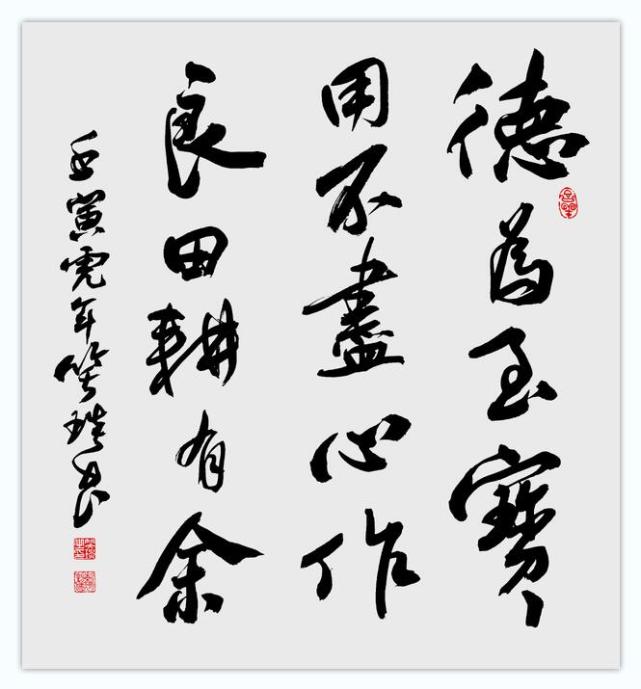 德為至寶
用不盡心作
良田耕有余
壬寅虎年笑琰书